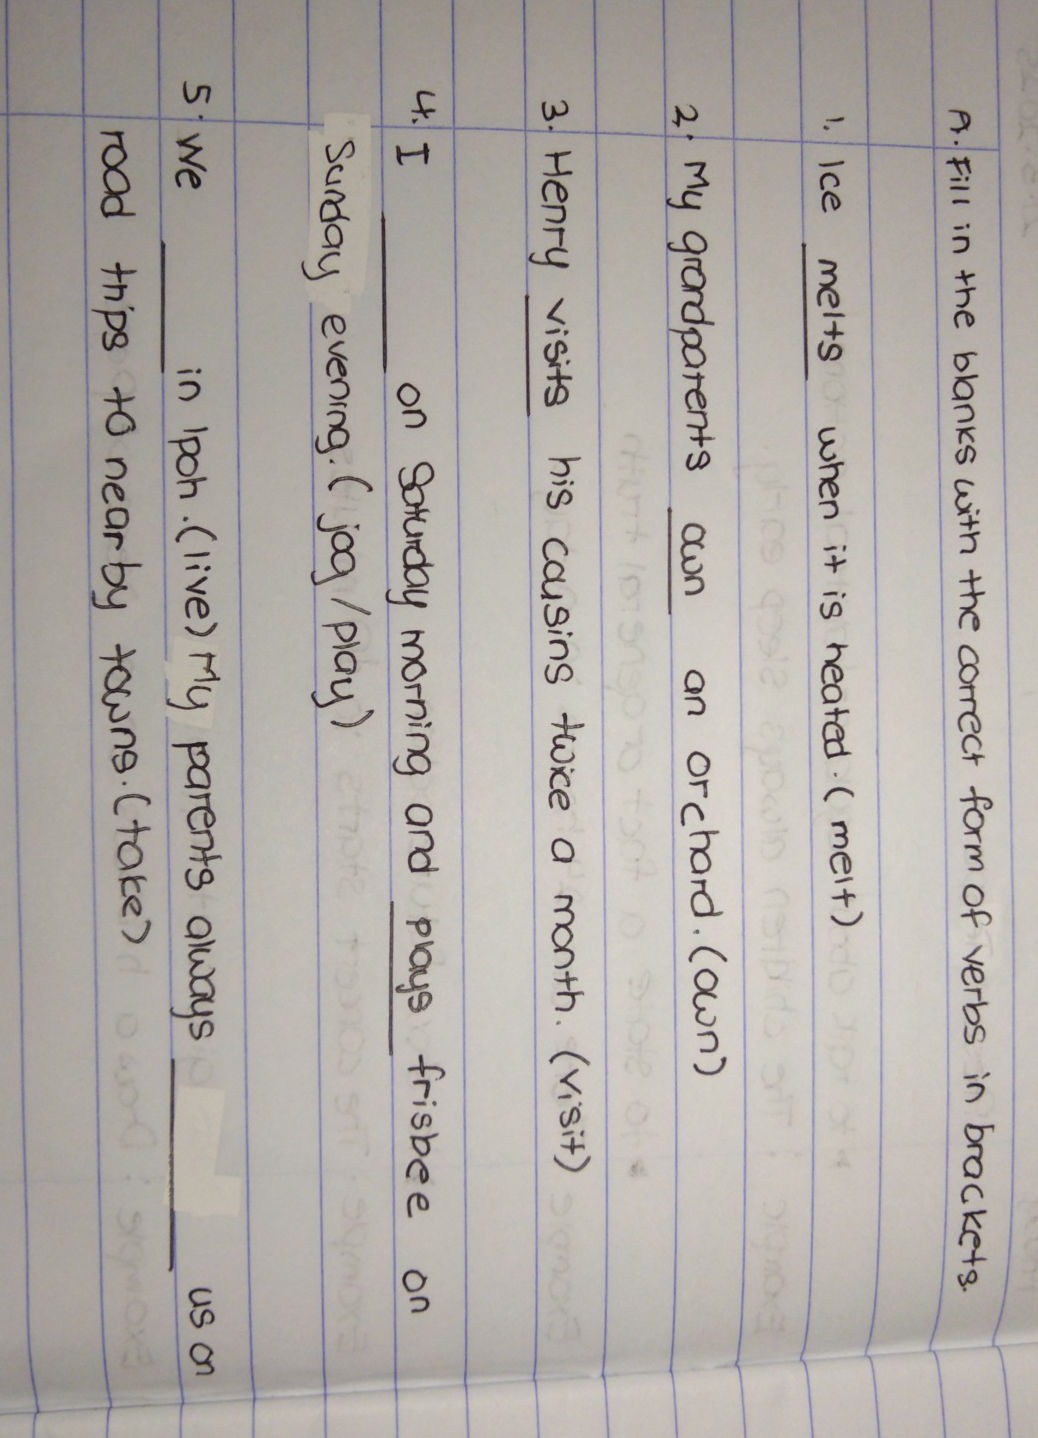 A. Fill in the blanks with the correct form of verbs in brackets.
1. Ice melts when it is heated. (melt)
2. My grandparents own an orchard. (own)
3. Henry visits his cousins twice a month. (visit)
4. I ____ on Saturday morning and plays frisbee on
Sunday evening. (jog/play)
5. We ____ in Ipoh. (live) My parents always ____ us on
road trips to nearby towns. (take)